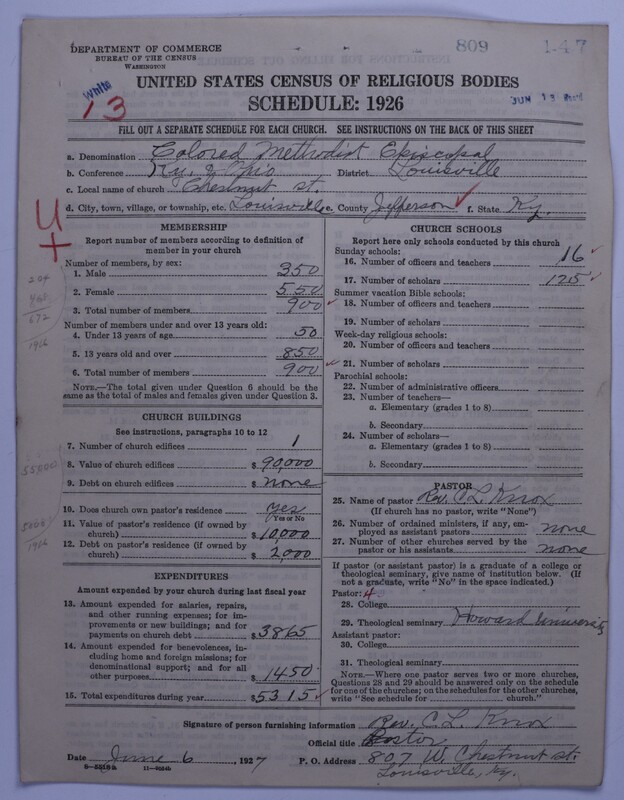 809 147
DEPARTMENT OF COMMERCE
BUREAU OF THE CENSUS
WASHINGTON
White
13
UNITED STATES CENSUS OF RELIGIOUS BODIES
SCHEDULE: 1926
JUN 13
FILL OUT A SEPARATE SCHEDULE FOR EACH CHURCH. SEE INSTRUCTIONS ON THE BACK OF THIS SHEET
a. Denomination Colored Methodist Episcopal
b. Conference Ky. & Ohio District Louisville
c. Local name of church Chestnut St.
d. City, town, village, or township, etc. Louisville e. County Jefferson f. State Ky.
MEMBERSHIP
Report number of members according to definition of
member in your church
Number of members, by sex:
1. Male 350
2. Female 550
3. Total number of members 900
Number of members under and over 13 years old:
4. Under 13 years of age 50
5. 13 years old and over 850
6. Total number of members 900
NOTE.—The total given under Question 6 should be the
same as the total of males and females given under Question 3.
204
468
672
1916
CHURCH BUILDINGS
See instructions, paragraphs 10 to 12
7. Number of church edifices 1
8. Value of church edifices $ 90,000
9. Debt on church edifices $ none
10. Does church own pastor's residence? Yes
Yes or No
11. Value of pastor's residence (if owned by
church) $ 10,000
12. Debt on pastor's residence (if owned by
church) $ 2,000
1916
EXPENDITURES
Amount expended by your church during last fiscal year
13. Amount expended for salaries, repairs,
and other running expenses; for im-
provements or new buildings; and for
payments on church debt $ 3865
14. Amount expended for benevolences, in-
cluding home and foreign missions; for
denominational support; and for all
other purposes $ 1450
15. Total expenditures during year $ 5315
CHURCH SCHOOLS
Report here only schools conducted by this church
Sunday schools:
16. Number of officers and teachers 16
17. Number of scholars 125
Summer vacation Bible schools:
18. Number of officers and teachers
19. Number of scholars
Week-day religious schools:
20. Number of officers and teachers
21. Number of scholars
Parochial schools:
22. Number of administrative officers
23. Number of teachers—
a. Elementary (grades 1 to 8)
b. Secondary
24. Number of scholars—
a. Elementary (grades 1 to 8)
b. Secondary
PASTOR
25. Name of pastor Rev. C L. Knox
(If church has no pastor, write "None")
26. Number of ordained ministers, if any, em-
ployed as assistant pastors none
27. Number of other churches served by the
pastor or his assistants none
If pastor (or assistant pastor) is a graduate of a college or
theological seminary, give name of institution below. (If
not a graduate, write "No" in the space indicated.)
Pastor: 4
28. College
29. Theological seminary Howard University
Assistant pastor:
30. College
31. Theological seminary
NOTE.—Where one pastor serves two or more churches,
Questions 28 and 29 should be answered only on the schedule
for one of the churches; on the schedules for the other churches,
write "See schedule for church."
Signature of person furnishing information Rev. C L. Knox
Official title Pastor
Date June 6, 1927 P. O. Address 807 W. Chestnut St.
Louisville, Ky.